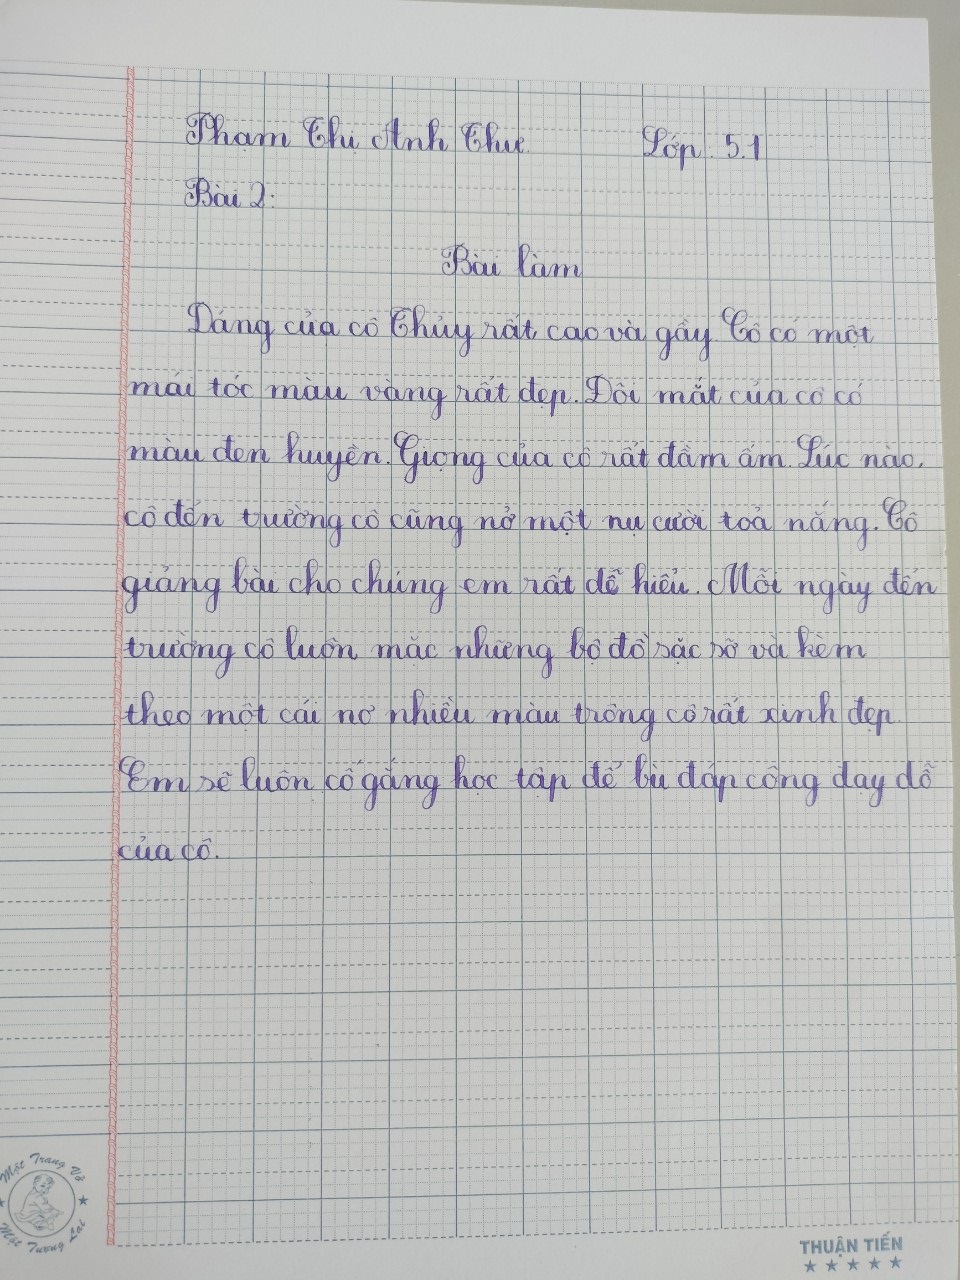 Phạm Thị Anh Thư Lớp 5.1
Bài 2:
Bài làm
Dáng của cô Thủy rất cao và gầy. Cô có một
mái tóc màu vàng rất đẹp. Đôi mắt của cô có
màu đen huyền. Giọng của cô rất đầm ấm. Lúc nào
cô đến trường cô cũng nở một nụ cười toả nắng. Cô
giảng bài cho chúng em rất dễ hiểu. Mỗi ngày đến
trường cô luôn mặc những bộ đồ sặc sỡ và kèm
theo một cái nơ nhiều màu trông cô rất xinh đẹp
Em sẽ luôn cố gắng học tập để bù đáp công dạy dỗ
của cô.
Một Trang Vở
Một Tương Lai
THUẬN TIẾN